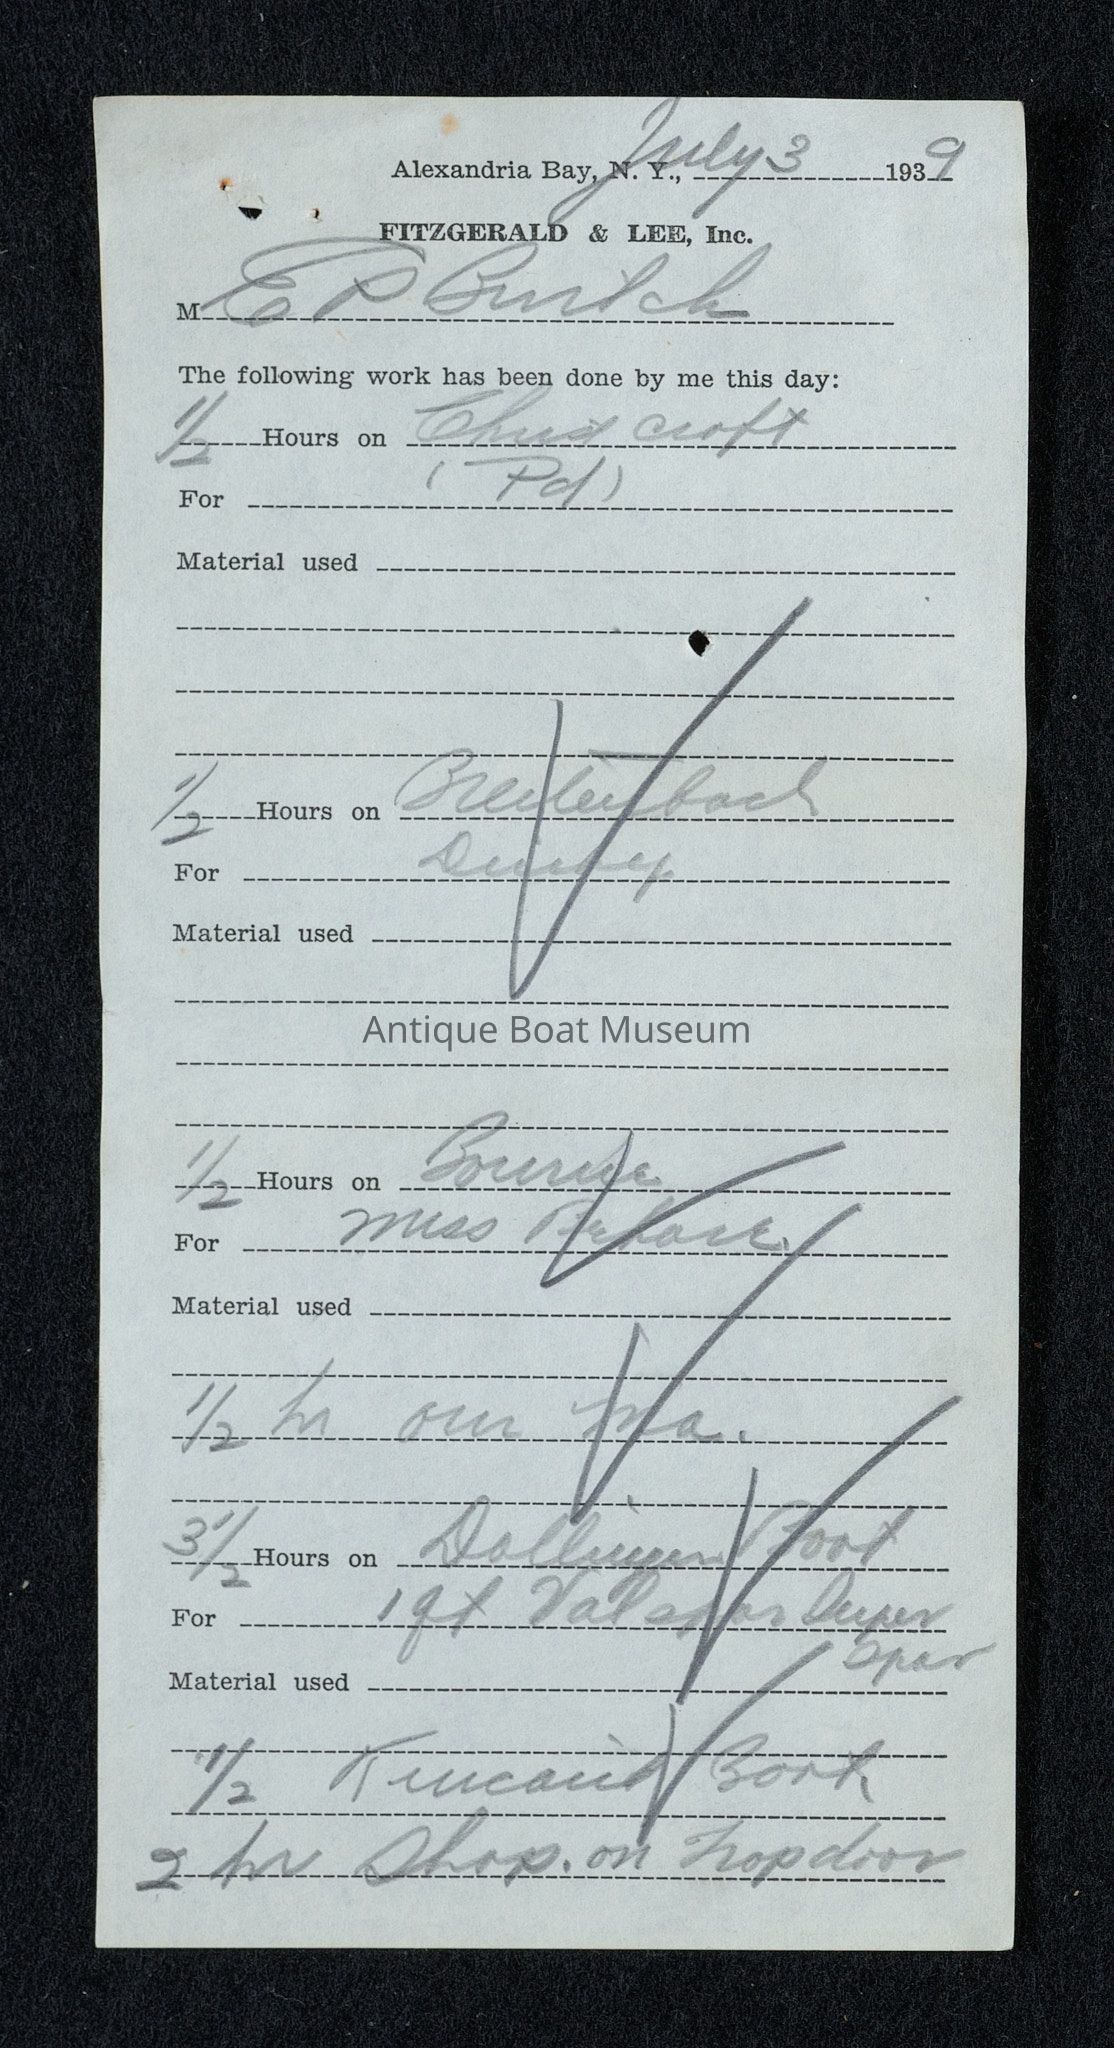 July 3
Alexandria Bay, N. Y., 1939
FITZGERALD & LEE, Inc.
M E P Burtch
The following work has been done by me this day:
1/2 Hours on Chris croft
For (Pd)
Material used
1/2 Hours on Breitenbach
For Dinkey
Material used
Antique Boat Museum
1/2 Hours on Bourne
For Miss
Material used
1/2 hr our
3 1/2 Hours on Dollinger Boat
For 1 qt Valspar Super
Spar
Material used
1/2 Kincaid Boat
2 hr Shop. on Trapdoor